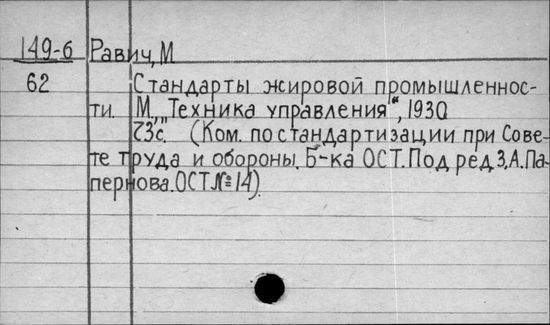 149-6 Равич, М
62 Стандарты жировой промышленнос-
ти. М., „Техника управления", 1930
23с. (Ком. по стандартизации при Сове-
те труда и обороны. Б-ка ОСТ. Под ред З.А.Па-
пернова. ОСТ №14)